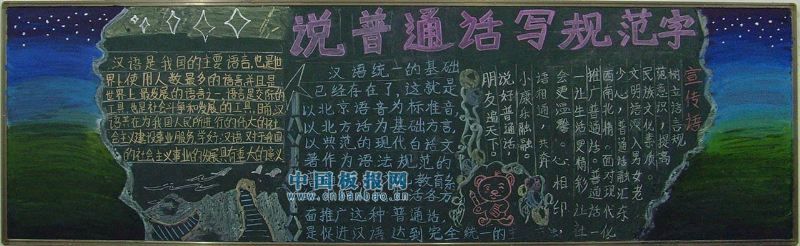 说普通话写规范字
汉语是我国的主要语言,也是
世界上使用人数最多的语言并且是
世界上最发展的语言之一,语言是交际的
工具,也是社会斗争和发展的工具,目前,汉
语正在为我国人民所进行的伟大的社
会主义建设事业服务,学好汉语,对于我国
的社会主义事业的发展具有重大的意义
汉语统一的基础
已经存在了,这就是
以北京语音为标准音,
以北方话为基础方言,
以典范的现代白话文
著作为语法规范的
教育系
话各方
面推广这种普通话,
是促进汉语达到完全统一的主
宣传语
树立语言规
范意识,提高
民族文化素质。
文明语深入男女老
少心,普通话融汇东
西南北情。面对现代化
推广普通话。普通话一
让生活更精彩,让社
会更温馨。心相印,
语相通,共奔
小康乐融融。
说好普通话
朋友遍天下。
中国板报网
www.cnbanbao.cn